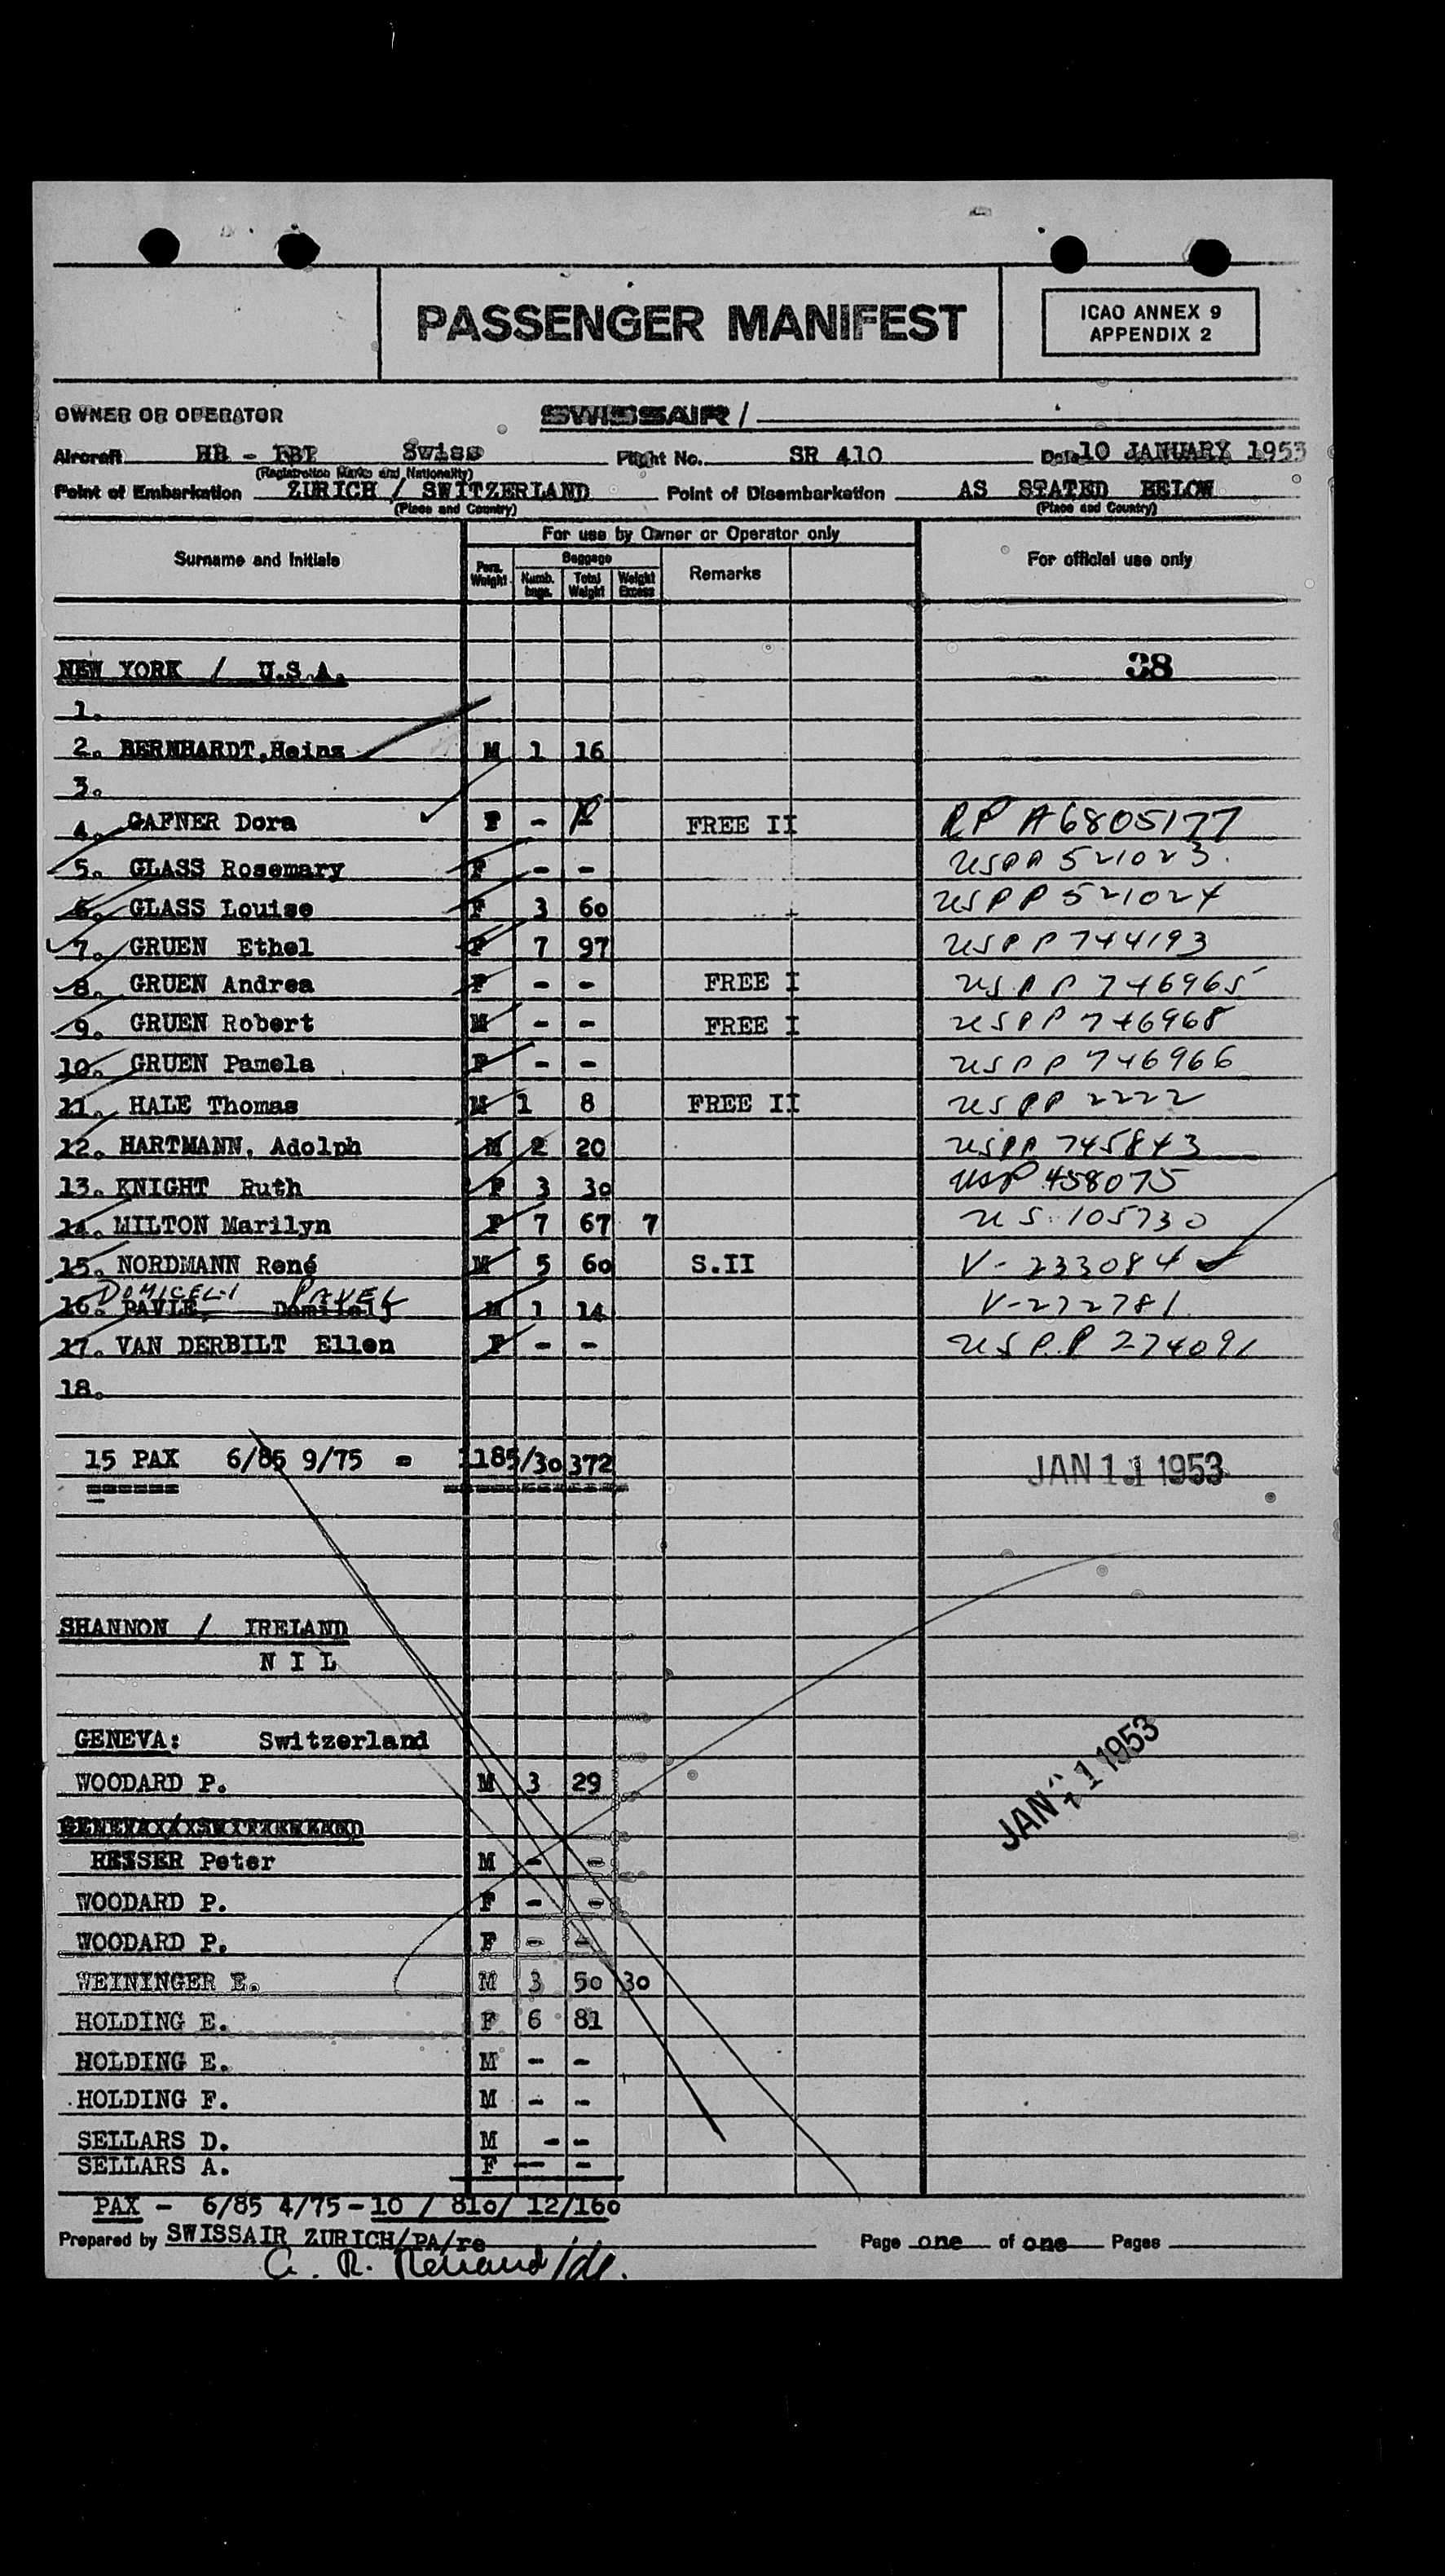 PASSENGER MANIFEST
ICAO ANNEX 9
APPENDIX 2
OWNER OR OPERATOR SWISSAIR /
Aircraft HB - Swiss Flight No. SR 410 Date 10 JANUARY 1953
(Registration Marks and Nationality)
Point of Embarkation ZURICH / SWITZERLAND Point of Disembarkation AS STATED BELOW
(Place and Country) (Place and Country)
For use by Owner or Operator only
Surname and Initials Pers. Weight Baggage Numb. bags. Total Weight Weight Excess Remarks For official use only
NEW YORK / U.S.A. 38
1.
2. BERNHARDT,Heinz M 1 16
3.
4. GAFNER Dora F - FREE II RP A6805177
5. GLASS Rosemary F - - USPP 521023.
6. GLASS Louise F 3 60 USPP 521024
7. GRUEN Ethel F 7 97 USPP 744193
8. GRUEN Andrea F - - FREE I USPP 746965
9. GRUEN Robert M - - FREE I USPP 746968
10. GRUEN Pamela F - - USPP 746966
11. HALE Thomas M 1 8 FREE II USPP 2222
12. HARTMANN, Adolph M 2 20 USPP 745843
13. KNIGHT Ruth F 3 30 USP 458075
14. MILTON Marilyn F 7 67 7 US 105730
15. NORDMANN René M 5 60 S.II V-233084
DOMICELJ PAVEL
16. PAVLE, M 1 14 V-272781
17. VAN DERBILT Ellen F - - USP.P 274091
18.
15 PAX 6/85 9/75 = 1185/30 372 JAN 11 1953
SHANNON / IRELAND
N I L
GENEVA: Switzerland
WOODARD P. M 3 29 JAN 11 1953
REISER Peter M - -
WOODARD P. F - -
WOODARD P. F - -
WEININGER E. M 3 50 30
HOLDING E. F 6 81
HOLDING E. M - -
HOLDING F. M - -
SELLARS D. M - -
SELLARS A. F - -
PAX - 6/85 4/75 - 10 / 810/ 12/160
Prepared by SWISSAIR ZURICH/PA/re Page one of one Pages